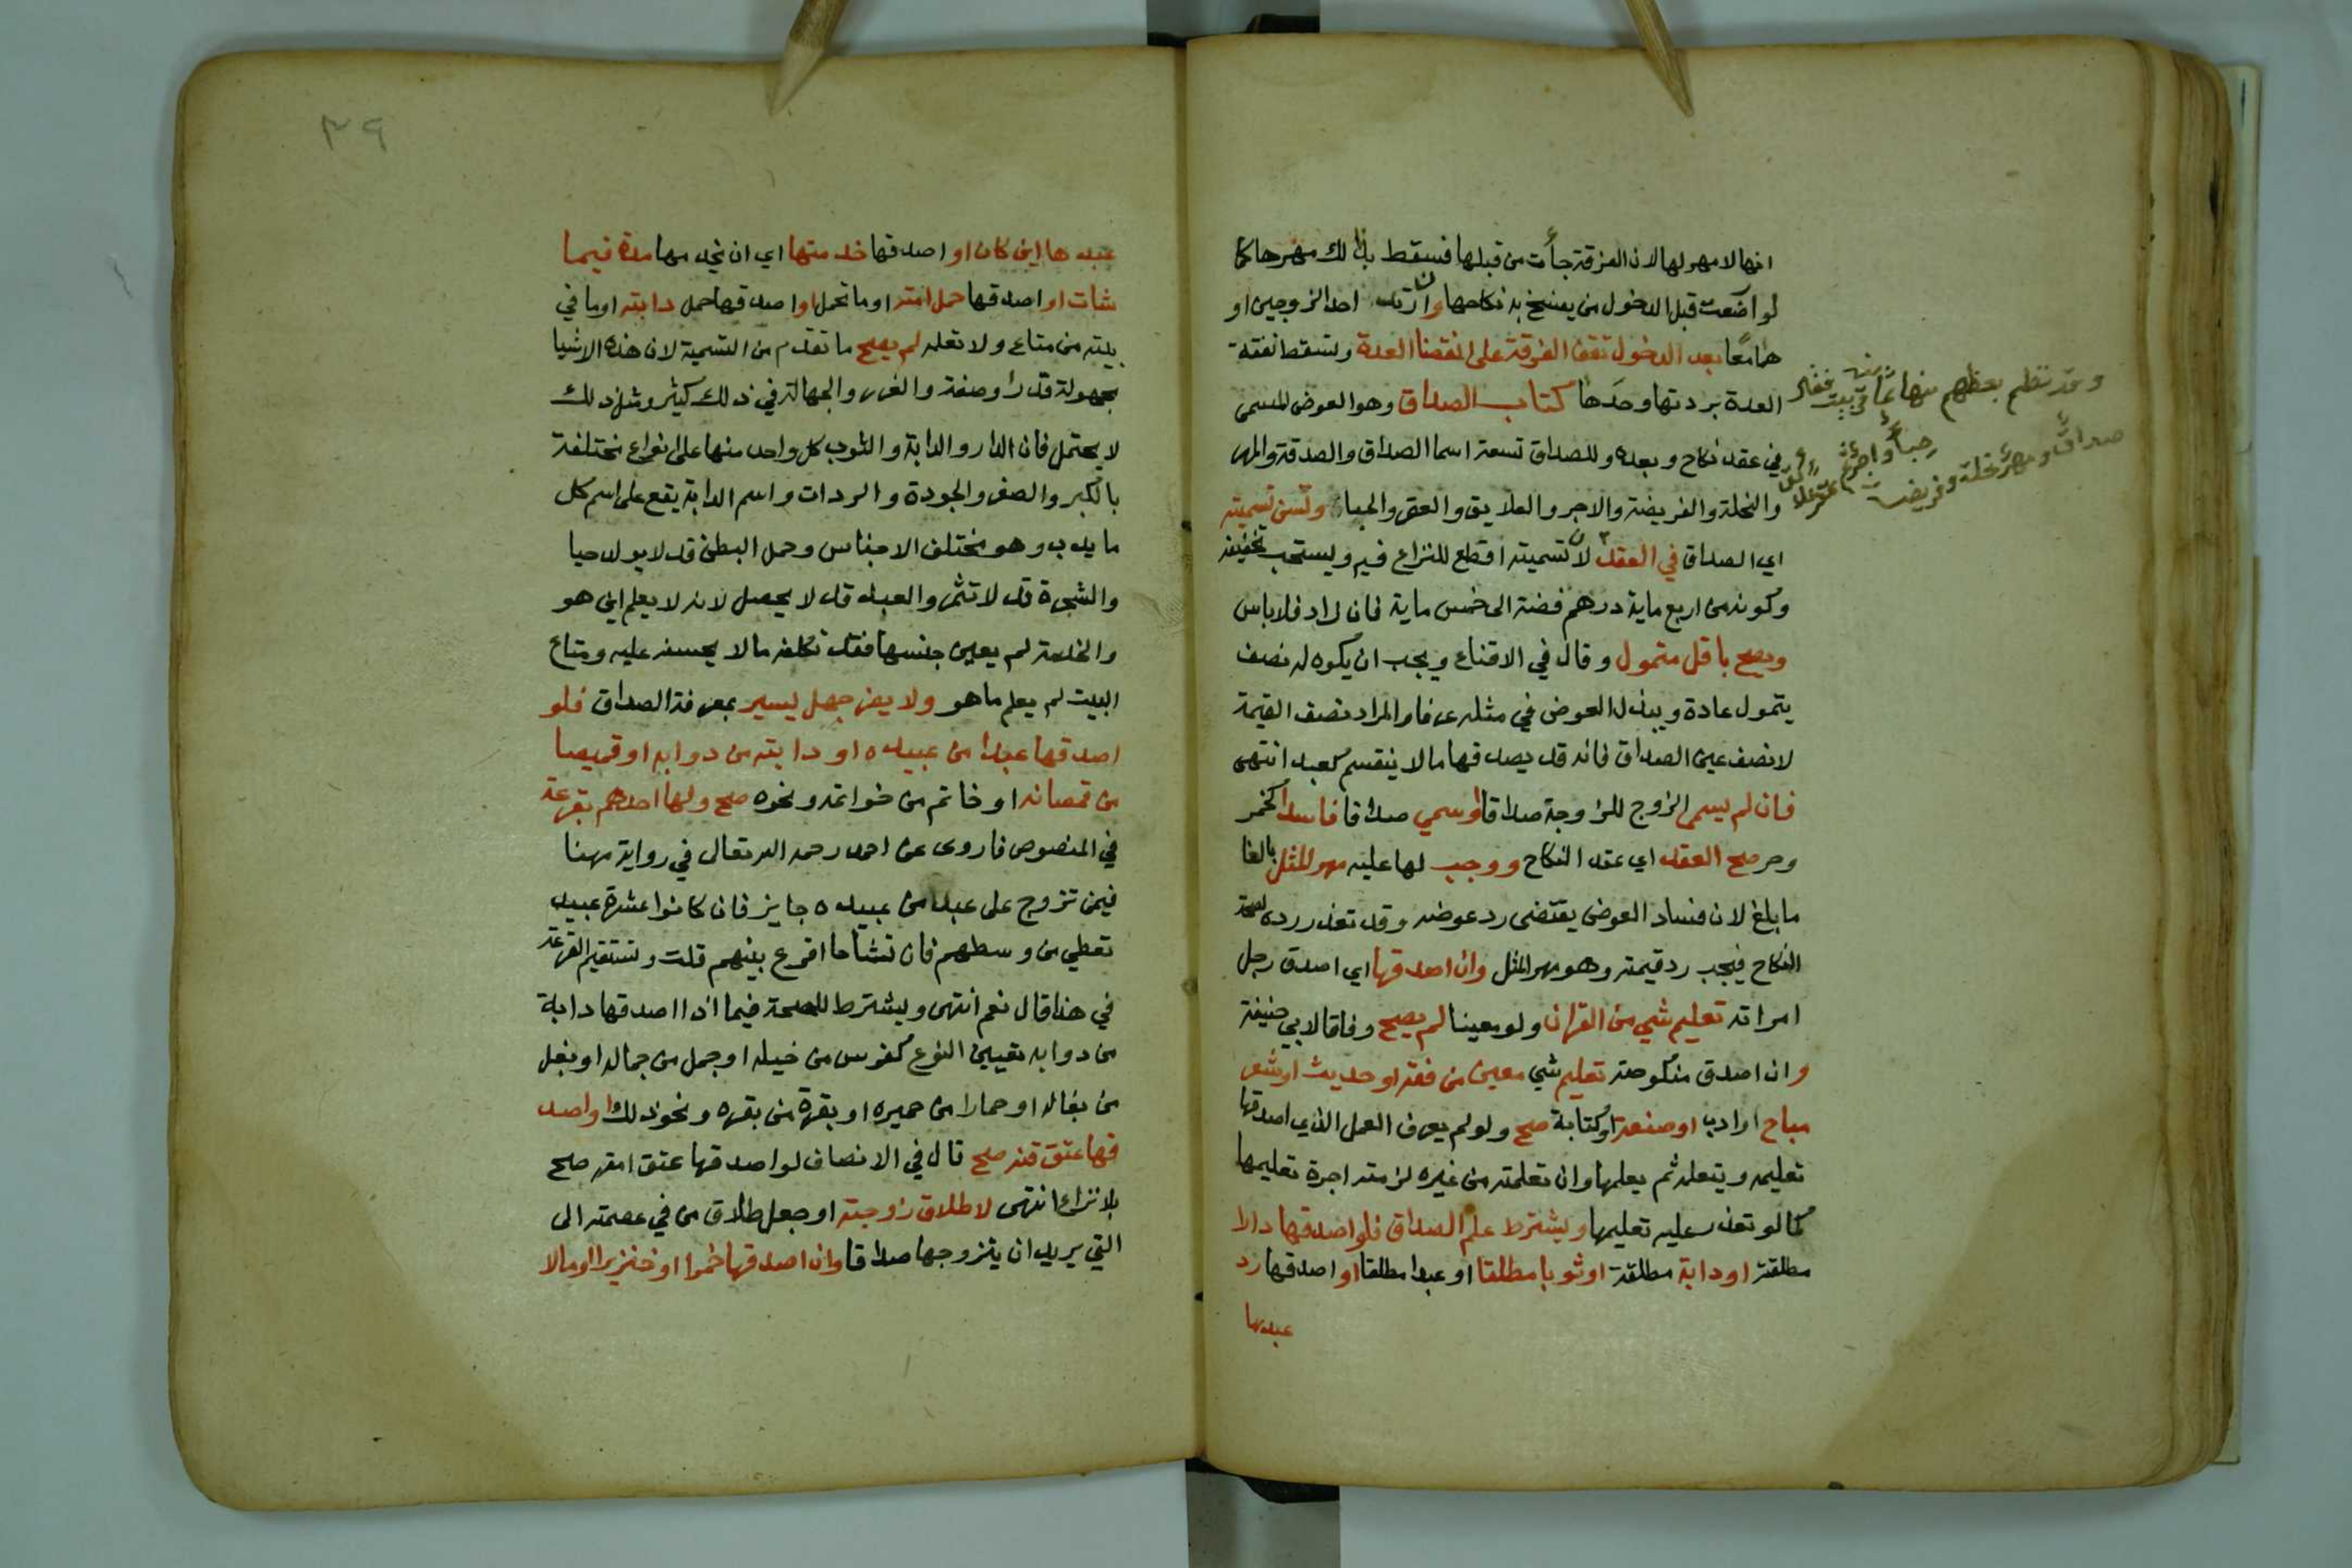 انها لا مهر لها لان الفرقة جأت من قبلها فسقط بذلك مهرها كما
لو ارضعت قبل الدخول من ينفسخ به نكاحها وان ارتد احد الزوجين او
هما معًا بعد الدخول تقف الفرقة على انقضا العدة وتسقط نفقة
العدة بردتها وحدها كتاب الصداق وهو العوض المسمى
في عقد نكاح وبعده وللصداق تسعة اسما الصداق والصدقة والمهر
والنحلة والفريضة والاجر والعلايق والعقر والحباء وتسن تسميته
اي الصداق في العقد لان تسميته اقطع للنزاع فيه ويستحب تخفيفه
وكونه من اربع ماية درهم فضة الى خمس ماية فان زاد فلا باس
ويصح باقل متمول وقال في الاقناع ويجب ان يكون له نصف
يتمول عادة ويبذل العوض في مثله عرفا والمراد نصف القيمة
لا نصف عين الصداق فانه قد يصدقها ما لا ينقسم كعبد انتهى
فان لم يسم الزوج للزوجة صداقا او سمي صداقا فاسدا كخمر
وحر صح العقد اي عقد النكاح ووجب لها عليه مهر المثل بالغا
ما بلغ لان فساد العوض يقتضى رد عوضه وقد تعذر رده لصحة
النكاح فيجب رد قيمته وهو مهر المثل وان اصدقها اي اصدق رجل
امراته تعليم شي من القران ولو معينا لم يصح وفاقا لابي حنيفة
وان اصدق منكوحته تعليم شي معين من فقه او حديث او شعر
مباح او ادب او صنعة او كتابة صح ولو لم يعرف العمل الذي اصدقها
تعليمه ويتعلمه ثم يعلمها وان تعلمته من غيره لزمته اجرة تعليمها
كما لو تعذر عليه تعليمها ويشترط علم الصداق فلو اصدقها دارا
مطلقة او دابة مطلقة او ثوبا مطلقا او عبدا مطلقا او اصدقها رد
عبدها
وقد نظم بعضهم منها ثمانية في بيت فقال
صداق ومهر نحلة وفريضة
حباء واجر ثم عقر علائق
٣٩
عبدها اين كان او اصدقها خدمتها اي ان يخدمها مدة فيما
شات او اصدقها حمل امته او ما تحمل او اصدقها حمل دابته او ما في
بيته من متاع ولا تعلمه لم يصح ما تقدم من التسمية لان هذه الاشيا
مجهولة قدرا وصفة والغرر والجهالة في ذلك كثير ومثل ذلك
لا يحتمل فان الدار والدابة والثوب كل واحد منها على انواع مختلفة
بالكبر والصغر والجودة والردات واسم الدابة يقع على اسم كل
ما يدب وهو مختلف الاجناس وحمل البطن قد لا يولد حيا
والشجرة قد لا تثمر والعبد قد لا يحصل لانه لا يعلم اين هو
والخدمة لم يعين جنسها فقد تكلفه ما لا يحسنه عليه ومتاع
البيت لم يعلم ما هو ولا يضر جهل يسير بمعرفة الصداق فلو
اصدقها عبدا من عبيده او دابة من دوابه او قميصا
من قمصانه او خاتم من خواتمه ونحوه صح ولها احدهم بقرعة
في المنصوص فاروى عن احمد رحمه الله تعالى في رواية مهنا
فيمن تزوج على عبد من عبيده جايز فان كانوا عشرة عبيد
تعطي من وسطهم فان تشاحا اقرع بينهم قلت وتستقيم القرعة
في هذا قال نعم انتهى ويشترط للصحة فيما اذا اصدقها دابة
من دوابه تعيين النوع كفرس من خيله او جمل من جماله او بغل
من بغاله او حمارا من حميره او بقرة من بقره ونحو ذلك او اصد
قها عتق قنه صح قال في الانصاف لو اصدقها عتق امته صح
بلا نزاع انتهى لا طلاق زوجته او جعل طلاق من في عصمته الى
التي يريد ان يتزوجها صداقا وان اصدقها خمرا او خنزيرا او مالا